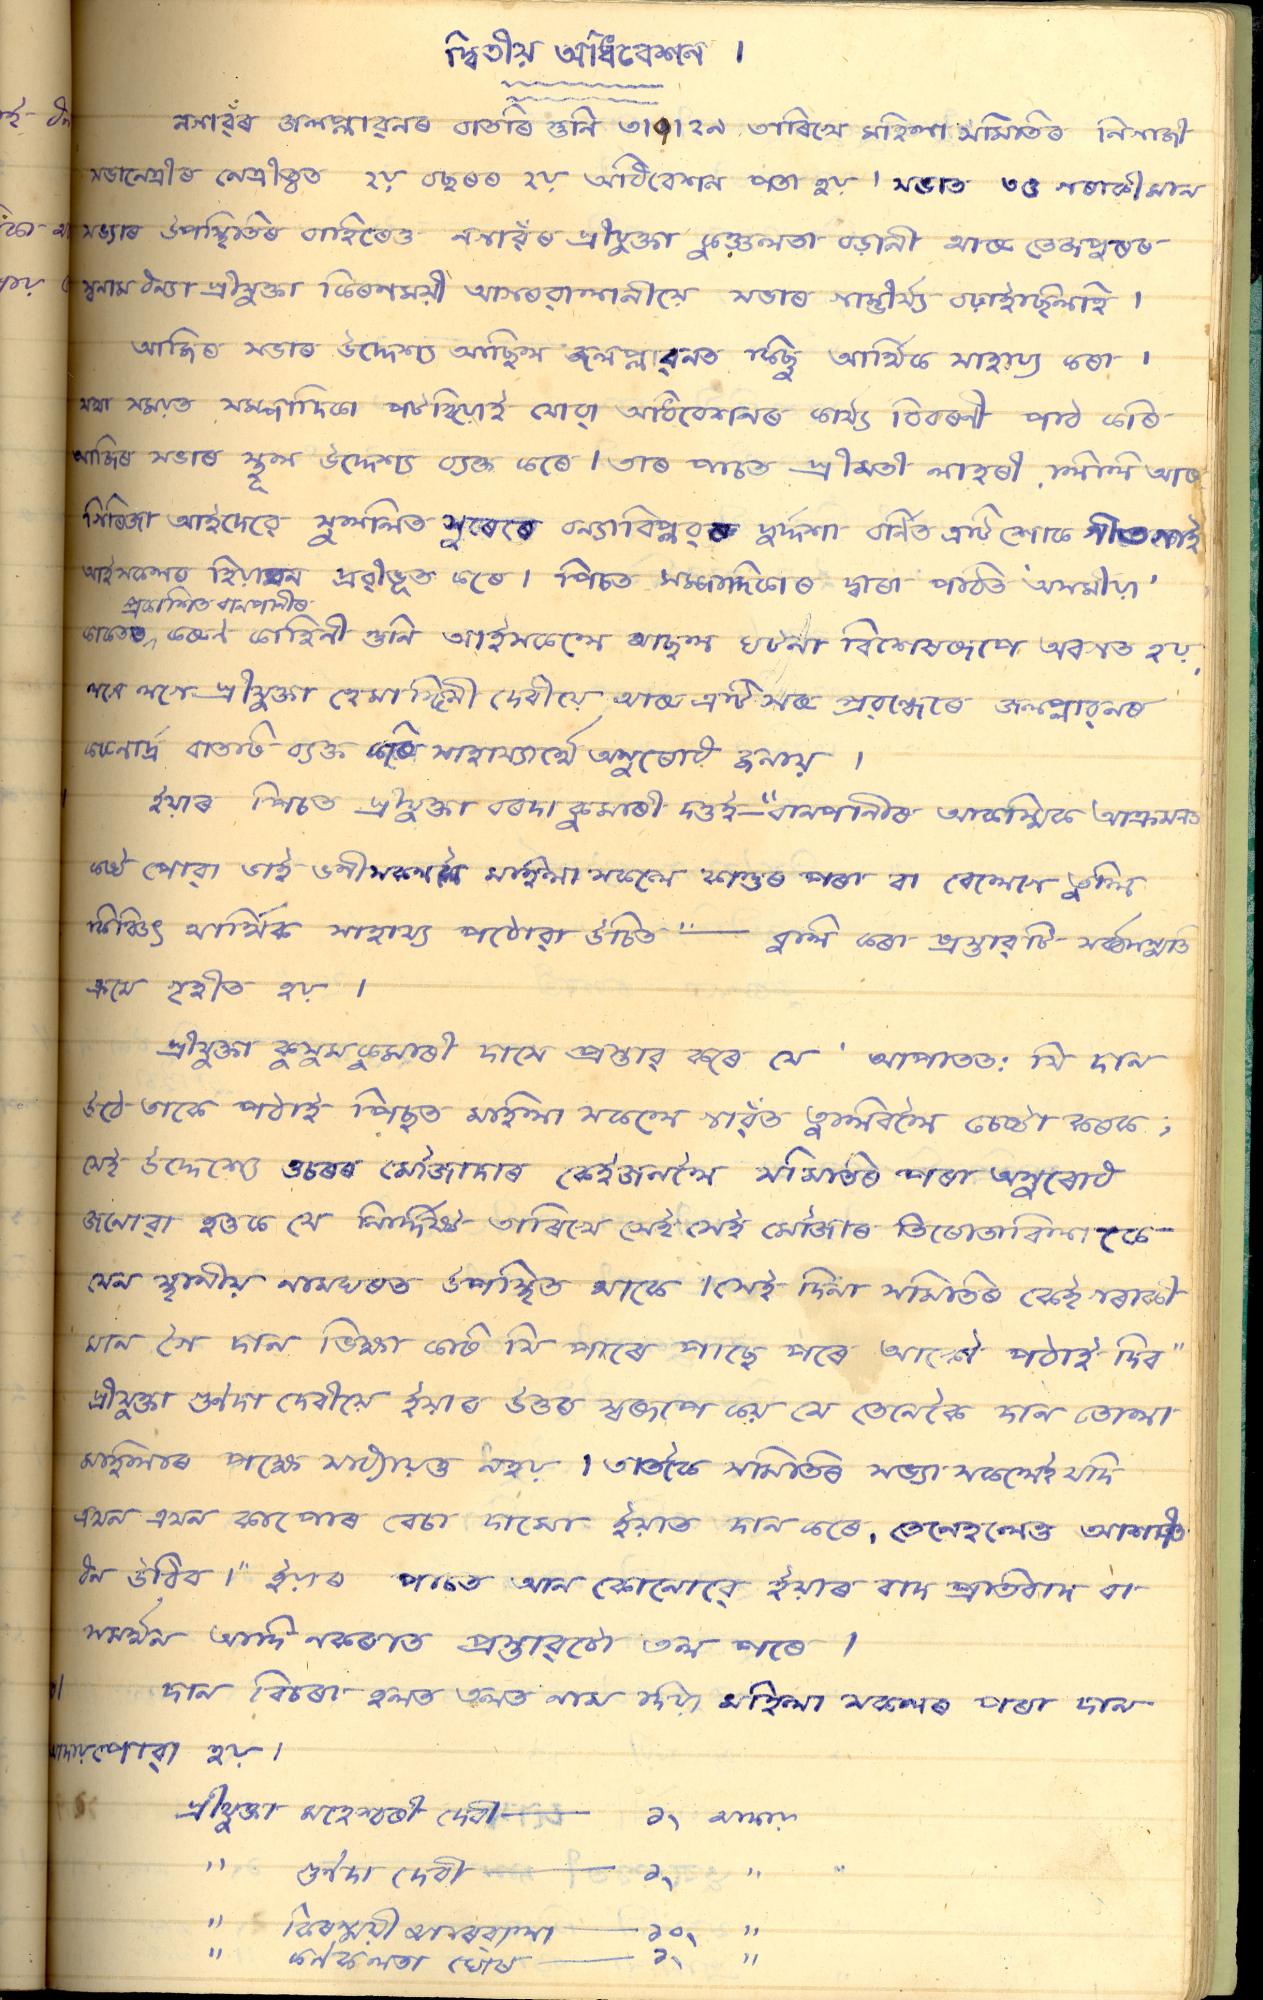 দ্বিতীয় অধিবেশন ।
নগাৱঁৰ জলপ্লাৱনৰ বাতৰি শুনি তাৰিখে মহিলা সমিতিৰ নিগাজী
সভানেত্ৰীৰ নেত্ৰীত্বত ২য় বছৰৰ ২য় অধিবেশন পতা হয় । সভাত ৩৫ গৰাকীমান
সভ্যাৰ উপস্থিতিৰ বাহিৰেও নগাৱঁৰ শ্ৰীযুক্তা কুঞ্জলতা বড়ানী আৰু তেজপুৰৰ
স্বনাম ধন্যা শ্ৰীযুক্তা কিৰণময়ী আগৰৱালানীয়ে সভাৰ গাম্ভীৰ্য্য বঢ়াইছিলহি ।
আজিৰ সভাৰ উদ্দেশ্য আছিল জলপ্লাৱনত কিছু আৰ্থিক সাহায্য কৰা ।
যথা সময়ত সম্পাদিকা যোৱা অধিবেশনৰ কাৰ্য্য বিবৰণী পাঠ কৰি
আজিৰ সভাৰ স্থূল উদ্দেশ্য ব্যক্ত কৰে । তাৰ পাচত শ্ৰীমতী লাহৰী, লিলি আৰু
গিৰিজা আইদেৱে সুললিত সুৰেৰে বন্যাবিপ্লৱৰ দুৰ্দ্দশা বৰ্নিত এটি শোক গীত গাই
আইসকলৰ হিয়া দ্ৰৱীভূত কৰে । পিচত সম্পাদিকাৰ দ্বাৰা পঠিত 'অসমীয়া'
প্ৰকাশিত বানপানীৰ
কাকতত কৰুণ কাহিনী শুনি আইসকলে আচল ঘটনা বিশেষৰূপে অৱগত হয়,
লগে লগে শ্ৰীযুক্তা হেমাঙ্গিনী দেবীয়ে আৰু এটি সৰু প্ৰৱন্ধেৰে জলপ্লাৱনৰ
বাতৰি ব্যক্ত কৰি সাহায্যাৰ্থে অনুৰোধ জনায় ।
ইয়াৰ পিচত শ্ৰীযুক্তা বৰদা কুমাৰী দত্তই—"বানপানীৰ আকস্মিক আক্ৰমনত
কষ্ট পোৱা ভাই ভনী সকললৈ মহিলা সকলে পৰা বা বেলেগে তুলি
কিঞ্চিৎ আৰ্থিক সাহায্য পঠোৱা উচিত"— বুলি কৰা প্ৰস্তাৱটি সৰ্ব্বসন্মতি
ক্ৰমে গৃহীত হয় ।
শ্ৰীযুক্তা কুসুম কুমাৰী দাসে প্ৰস্তাৱ কৰে যে 'আপাততঃ যি দান
উঠে তাকে পঠাই পিছত মহিলা সকলে গাৱঁত তুলিবলৈ চেষ্টা কৰক ;
সেই উদ্দেশ্যে ওচৰৰ মৌজাদাৰ কেইজনলৈ সমিতিৰ পৰা অনুৰোধ
জনোৱা হওক যে নিৰ্দ্দিষ্ট তাৰিখে সেই সেই মৌজাৰ তিৰোতাবিলাকে
যেন স্থানীয় নামঘৰত উপস্থিত থাকে । সেই দিনা সমিতিৰ কেইগৰাকী
মান গৈ দান ভিক্ষা কৰি যি পাৰে পাছে পৰে আকৌ পঠাই দিব"
শ্ৰীযুক্তা গুণদা দেবীয়ে ইয়াৰ উত্তৰ স্বৰূপে কয় যে তেনেকৈ দান তোলা
মহিলাৰ পক্ষে সাধ্যায়ত্ত নহয় । তাতকৈ সমিতিৰ সভ্যা সকলেই যদি
এখন এখন কাপোৰ বেচা দামো ইয়াত দান কৰে, তেনেহলেও আশাতীত
ধন উঠিব ।" ইয়াৰ পাচত আন কোনোৱে ইয়াৰ বাদ প্ৰতিবাদ বা
সমৰ্থন আদি নকৰাত প্ৰস্তাৱটো তল পৰে ।
দান বিচৰা হলত তলত নাম দিয়া মহিলা সকলৰ পৰা দান
আদায় পোৱা হয় ।
শ্ৰীযুক্তা মহেশ্বৰী দেবী —— ১৲ আদায়
" গুণদা দেবী —— ১৲ " "
" কিৰণময়ী আগৰৱালা —— ১০৲ "
" কনকলতা ঘোষ —— ১৲ "